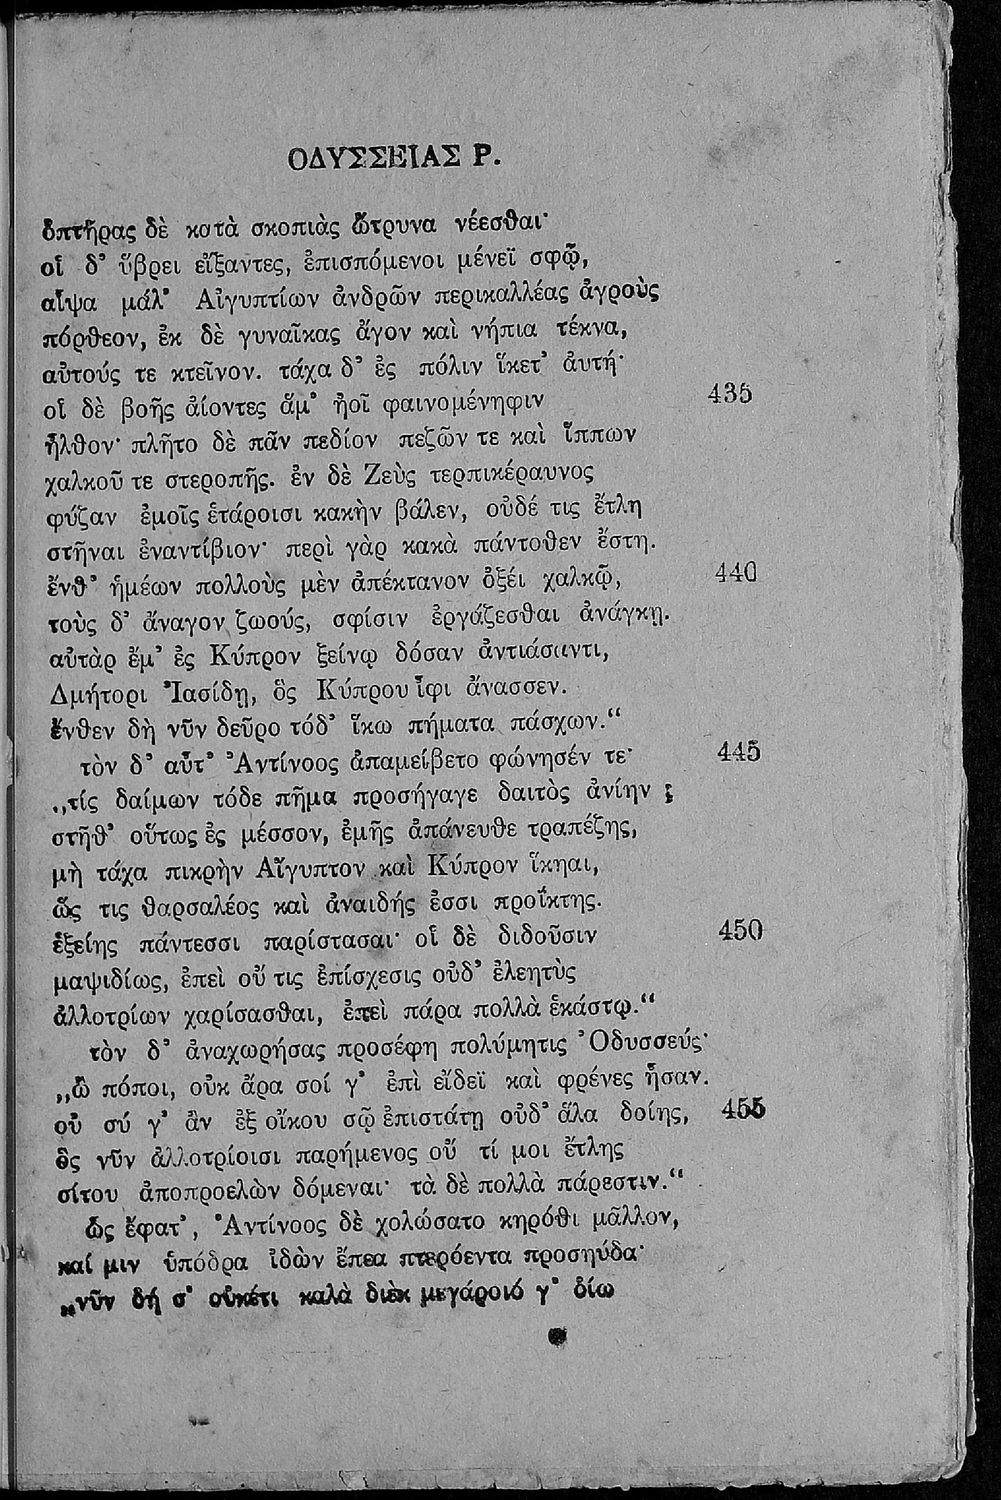 ΟΔΥΣΣΕΙΑΣ Ρ.
ὀπτῆρας δὲ κατὰ σκοπιὰς ὤτρυνα νέεσθαι·
οἱ δ᾽ ὕβρει εἴξαντες, ἐπισπόμενοι μένεϊ σφῷ,
αἶψα μάλ᾽ Αἰγυπτίων ἀνδρῶν περικαλλέας ἀγροὺς
πόρθεον, ἐκ δὲ γυναῖκας ἄγον καὶ νήπια τέκνα,
αὐτούς τε κτεῖνον. τάχα δ᾽ ἐς πόλιν ἵκετ᾽ ἀυτή·
οἱ δὲ βοῆς ἀίοντες ἅμ᾽ ἠοῖ φαινομένηφιν 435
ἦλθον· πλῆτο δὲ πᾶν πεδίον πεζῶν τε καὶ ἵππων
χαλκοῦ τε στεροπῆς. ἐν δὲ Ζεὺς τερπικέραυνος
φύζαν ἐμοῖς ἑτάροισι κακὴν βάλεν, οὐδέ τις ἔτλη
στῆναι ἐναντίβιον· περὶ γὰρ κακὰ πάντοθεν ἔστη.
ἔνθ᾽ ἡμέων πολλοὺς μὲν ἀπέκτανον ὀξέι χαλκῷ, 440
τοὺς δ᾽ ἄναγον ζωούς, σφίσιν ἐργάζεσθαι ἀνάγκῃ.
αὐτὰρ ἔμ᾽ ἐς Κύπρον ξείνῳ δόσαν ἀντιάσαντι,
Δμήτορι Ἰασίδῃ, ὃς Κύπρου ἶφι ἄνασσεν.
ἔνθεν δὴ νῦν δεῦρο τόδ᾽ ἵκω πήματα πάσχων.“
τὸν δ᾽ αὖτ᾽ Ἀντίνοος ἀπαμείβετο φώνησέν τε· 445
„τίς δαίμων τόδε πῆμα προσήγαγε δαιτὸς ἀνίην ;
στῆθ᾽ οὕτως ἐς μέσσον, ἐμῆς ἀπάνευθε τραπέζης,
μὴ τάχα πικρὴν Αἴγυπτον καὶ Κύπρον ἵκηαι,
ὥς τις θαρσαλέος καὶ ἀναιδής ἐσσι προΐκτης.
ἑξείης πάντεσσι παρίστασαι· οἱ δὲ διδοῦσιν 450
μαψιδίως, ἐπεὶ οὔ τις ἐπίσχεσις οὐδ᾽ ἐλεητὺς
ἀλλοτρίων χαρίσασθαι, ἐπεὶ πάρα πολλὰ ἑκάστῳ.“
τὸν δ᾽ ἀναχωρήσας προσέφη πολύμητις Ὀδυσσεύς·
„ὦ πόποι, οὐκ ἄρα σοί γ᾽ ἐπὶ εἴδεϊ καὶ φρένες ἦσαν.
οὐ σύ γ᾽ ἂν ἐξ οἴκου σῷ ἐπιστάτῃ οὐδ᾽ ἅλα δοίης, 455
ὃς νῦν ἀλλοτρίοισι παρήμενος οὔ τί μοι ἔτλης
σίτου ἀποπροελὼν δόμεναι· τὰ δὲ πολλὰ πάρεστιν.“
ὣς ἔφατ᾽, Ἀντίνοος δὲ χολώσατο κηρόθι μᾶλλον,
καί μιν ὑπόδρα ἰδὼν ἔπεα πτερόεντα προσηύδα·
„νῦν δή σ᾽ οὐκέτι καλὰ διὲκ μεγάροιό γ᾽ ὀίω